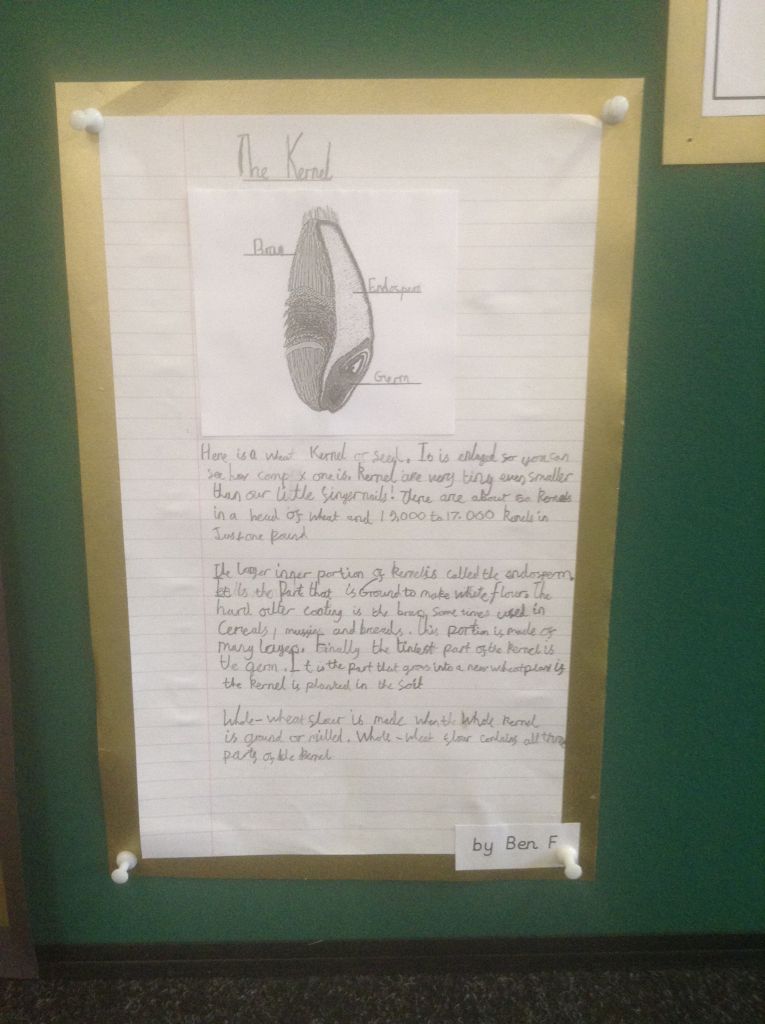 The Kernel
Bran
Endosperm
Germ
Here is a wheat Kernel or seed. It is enlaged so you can
see how comp x one is. Kernel are very tiny even smaller
than our little fingernails! There are about 50 Kernels
in a head of wheat and 15,000 to 17.000 Kernels in
Just one Pound
The larger inner portion of Kernel is called the endosperm.
It is the Part that is Ground to make white flour. The
hard outer coating is the bran, Some times used in
Cereals, and breads. This portion is made of
many layers. Finally the tiniest part of the kernel is
the germ. It is the part that grows into a new wheat plant if
the kernel is planted in the soil
Whole-wheat flour is made when the Whole Kernel
is ground or milled. Whole-wheat flour contains all three
parts of the kernel
by Ben F